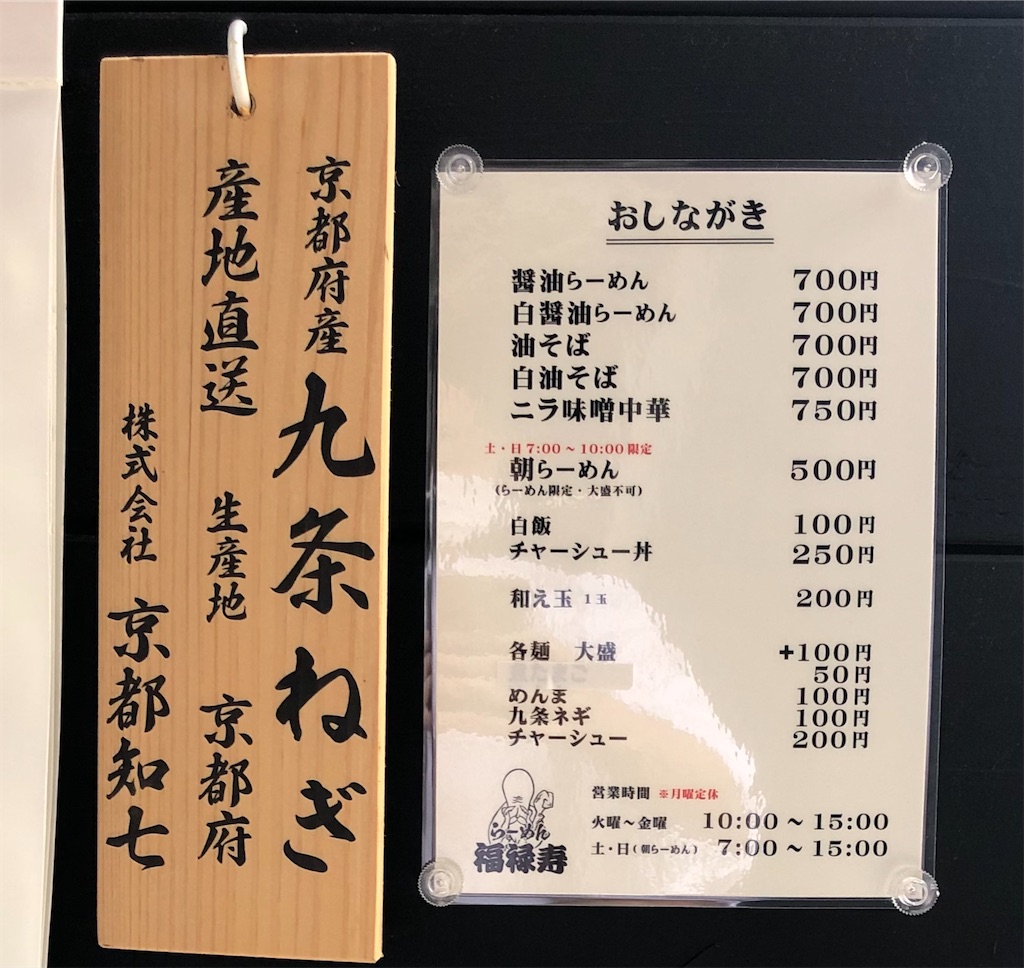 京都府産 九条ねぎ
産地直送 生産地 京都府
株式会社 京都知七
おしながき
醤油らーめん 700円
白醤油らーめん 700円
油そば 700円
白油そば 700円
ニラ味噌中華 750円
土・日7:00～10:00限定
朝らーめん 500円
(らーめん限定・大盛不可)
白飯 100円
チャーシュー丼 250円
和え玉 1玉 200円
各麺 大盛 +100円
50円
めんま 100円
九条ネギ 100円
チャーシュー 200円
らーめん
福禄寿
営業時間 ※月曜定休
火曜～金曜 10:00～15:00
土・日(朝らーめん) 7:00～15:00